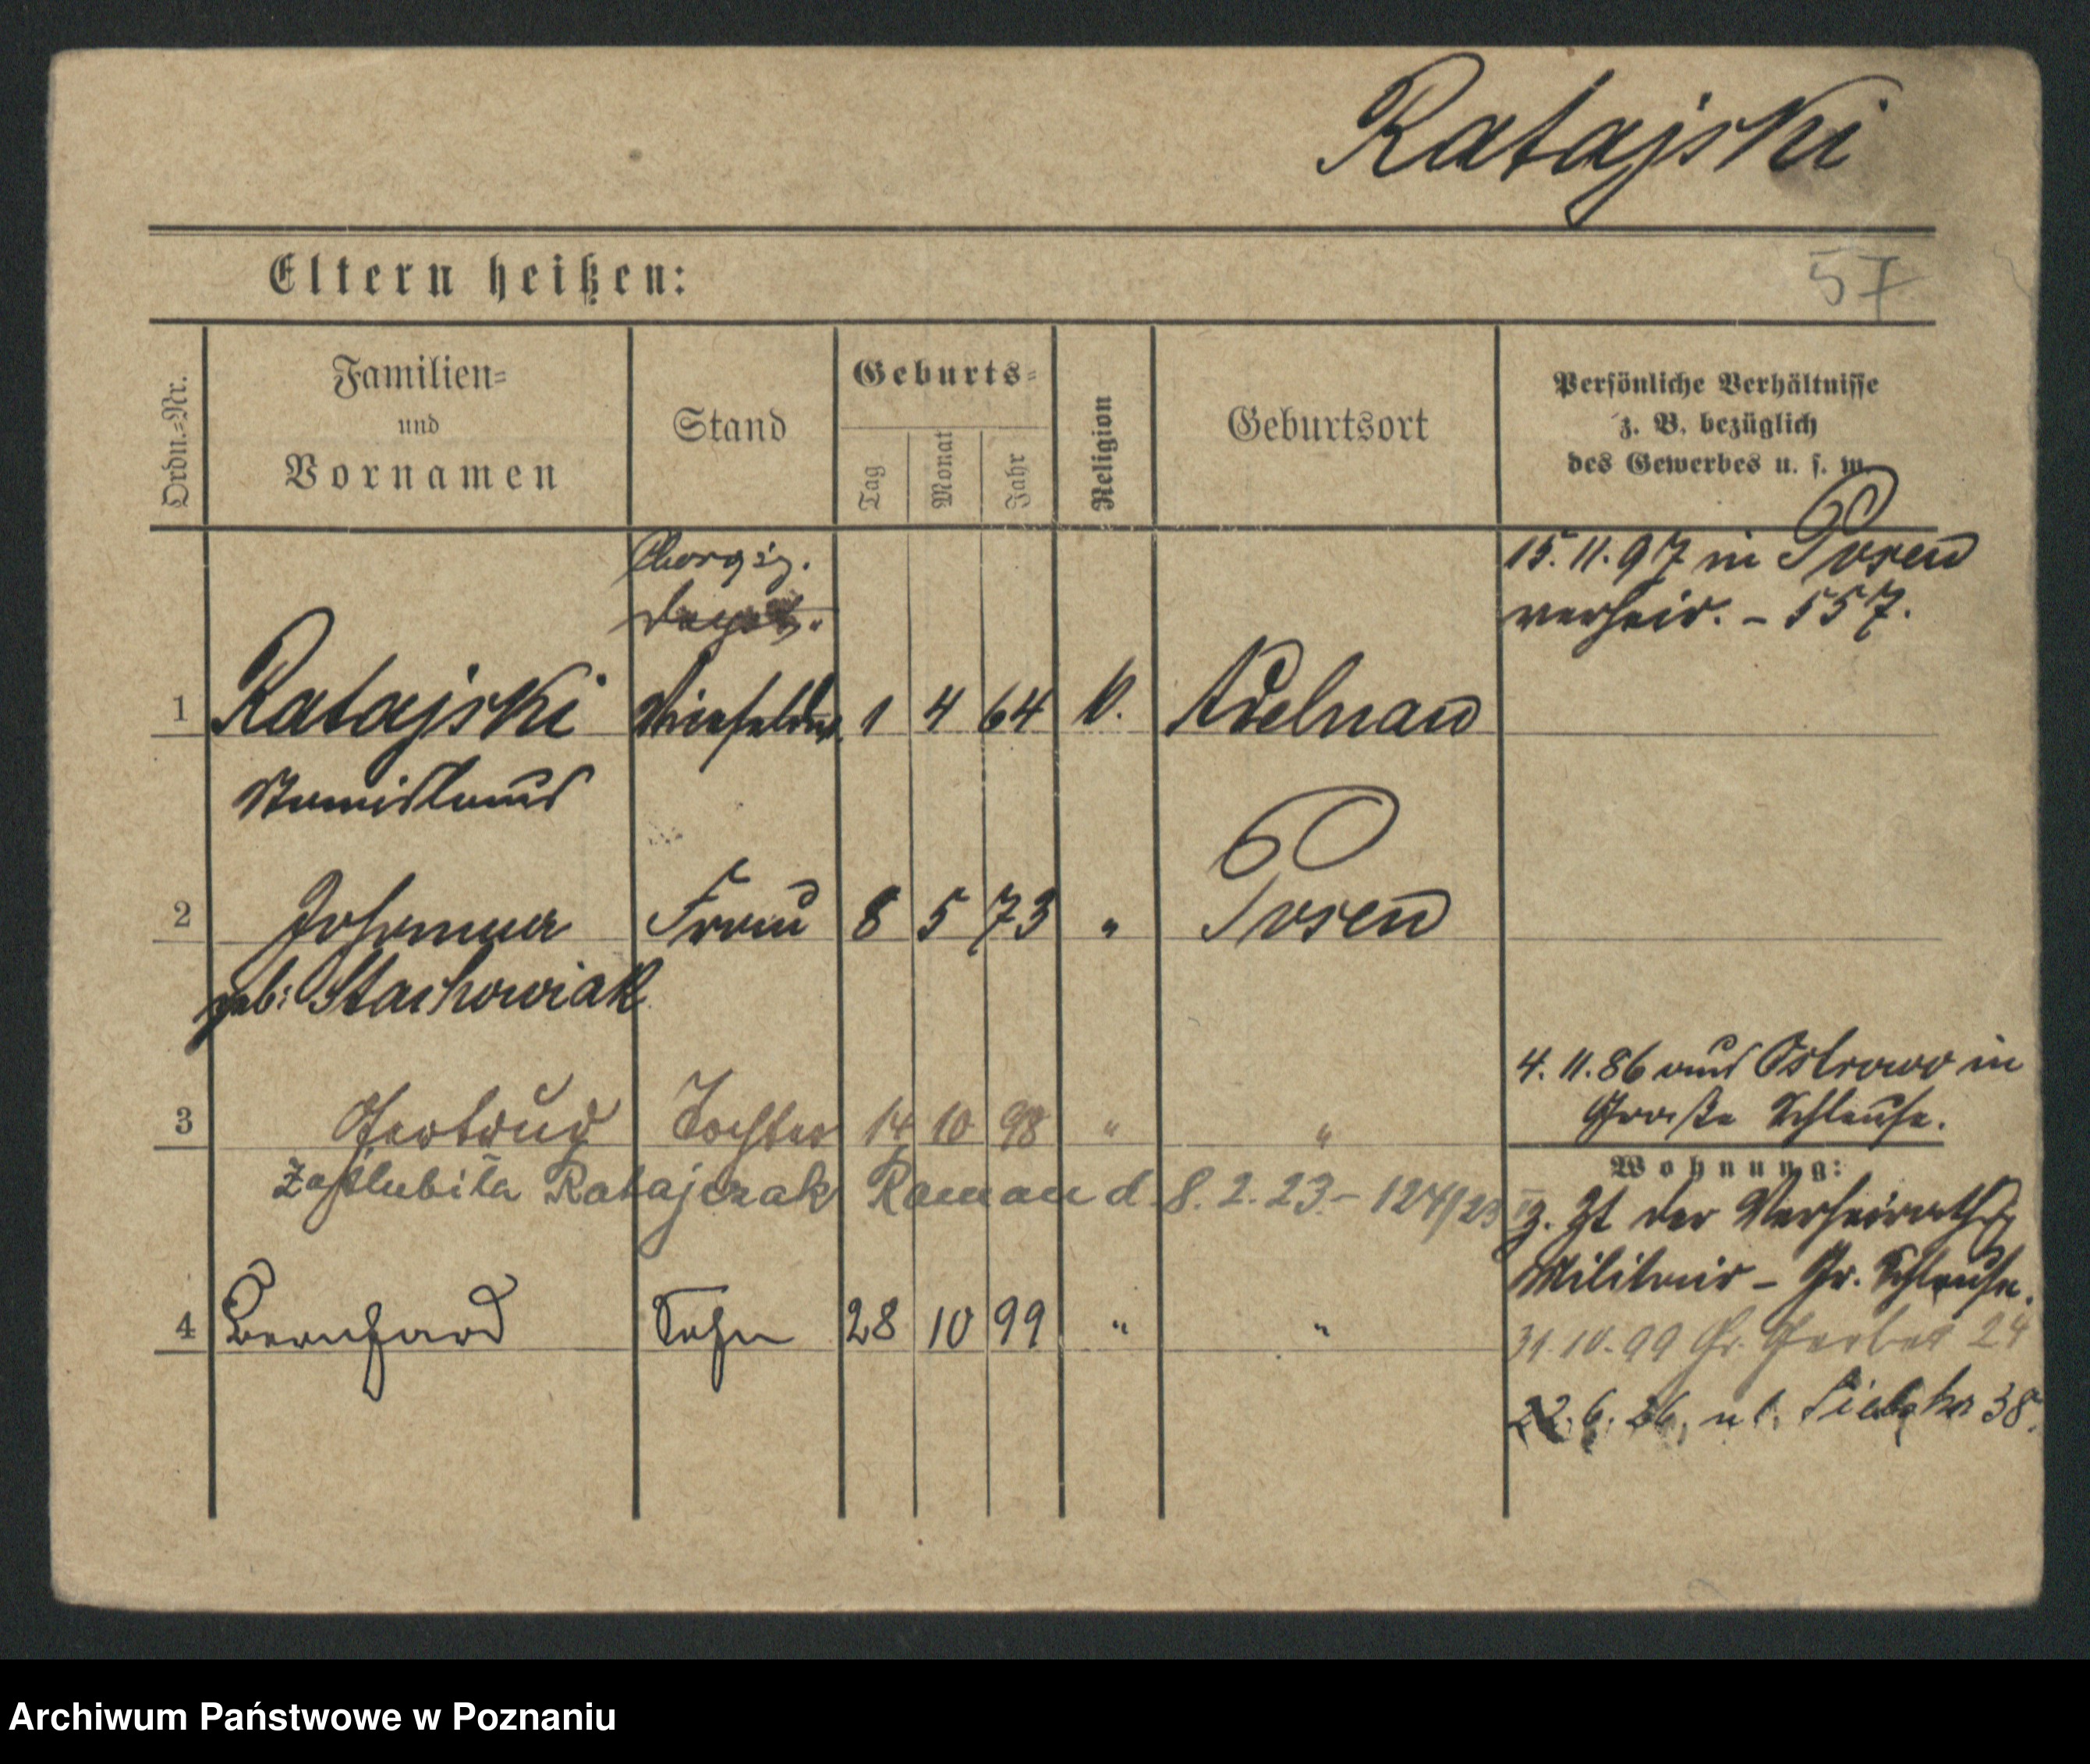 Ratajski
Eltern heißen:
57
Ordn.-Nr.
Familien-
und
Vornamen
Stand
Geburts-
Tag
Monat
Jahr
Religion
Geburtsort
Persönliche Verhältnisse
z. B. bezüglich
des Gewerbes u. s. w.
15.11.97 in Posen
verheir. - 557.
1 Ratajski 1 4 64 k. Adelnau
Stanislaus
2 Johanna Frau 8 5 73 " Posen
geb: Stachowiak
4. 11. 86 aus Ostrowo in
Große Schleuse.
3 Gertrud Tochter 14 10 98 " "
Wohnung:
zaślubiła Ratajczak Roman d. 8. 2. 23 - 124/23
z. Zt der Verheirathg
Militair - Gr. Schleuse.
4 Bernhard Sohn 28 10 99 " "
31.10.99 Gr. Gerber 24
22. 6. 26. ul. 38.
Archiwum Państwowe w Poznaniu